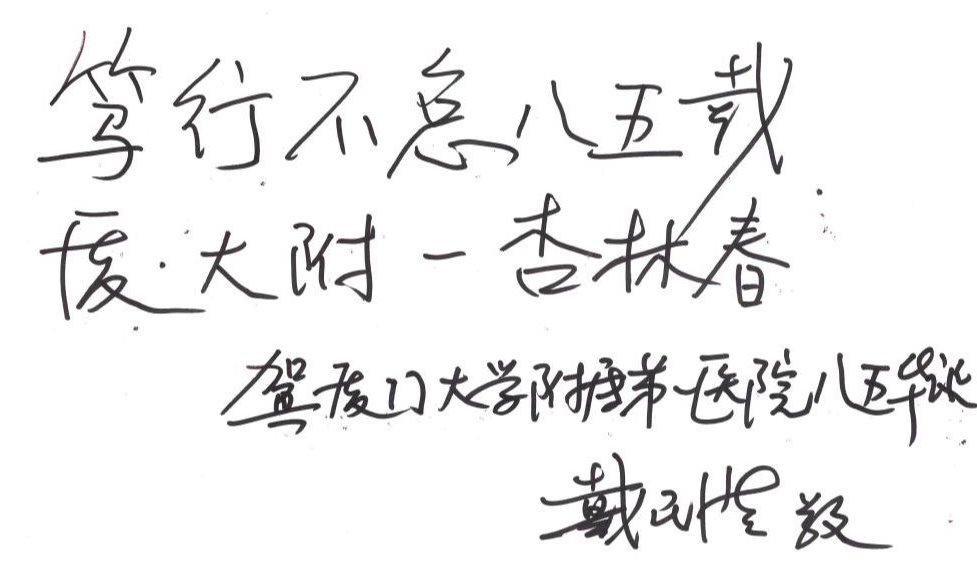 笃行不怠八五载
厦大附一杏林春
贺厦门大学附属第一医院八五华诞
戴民